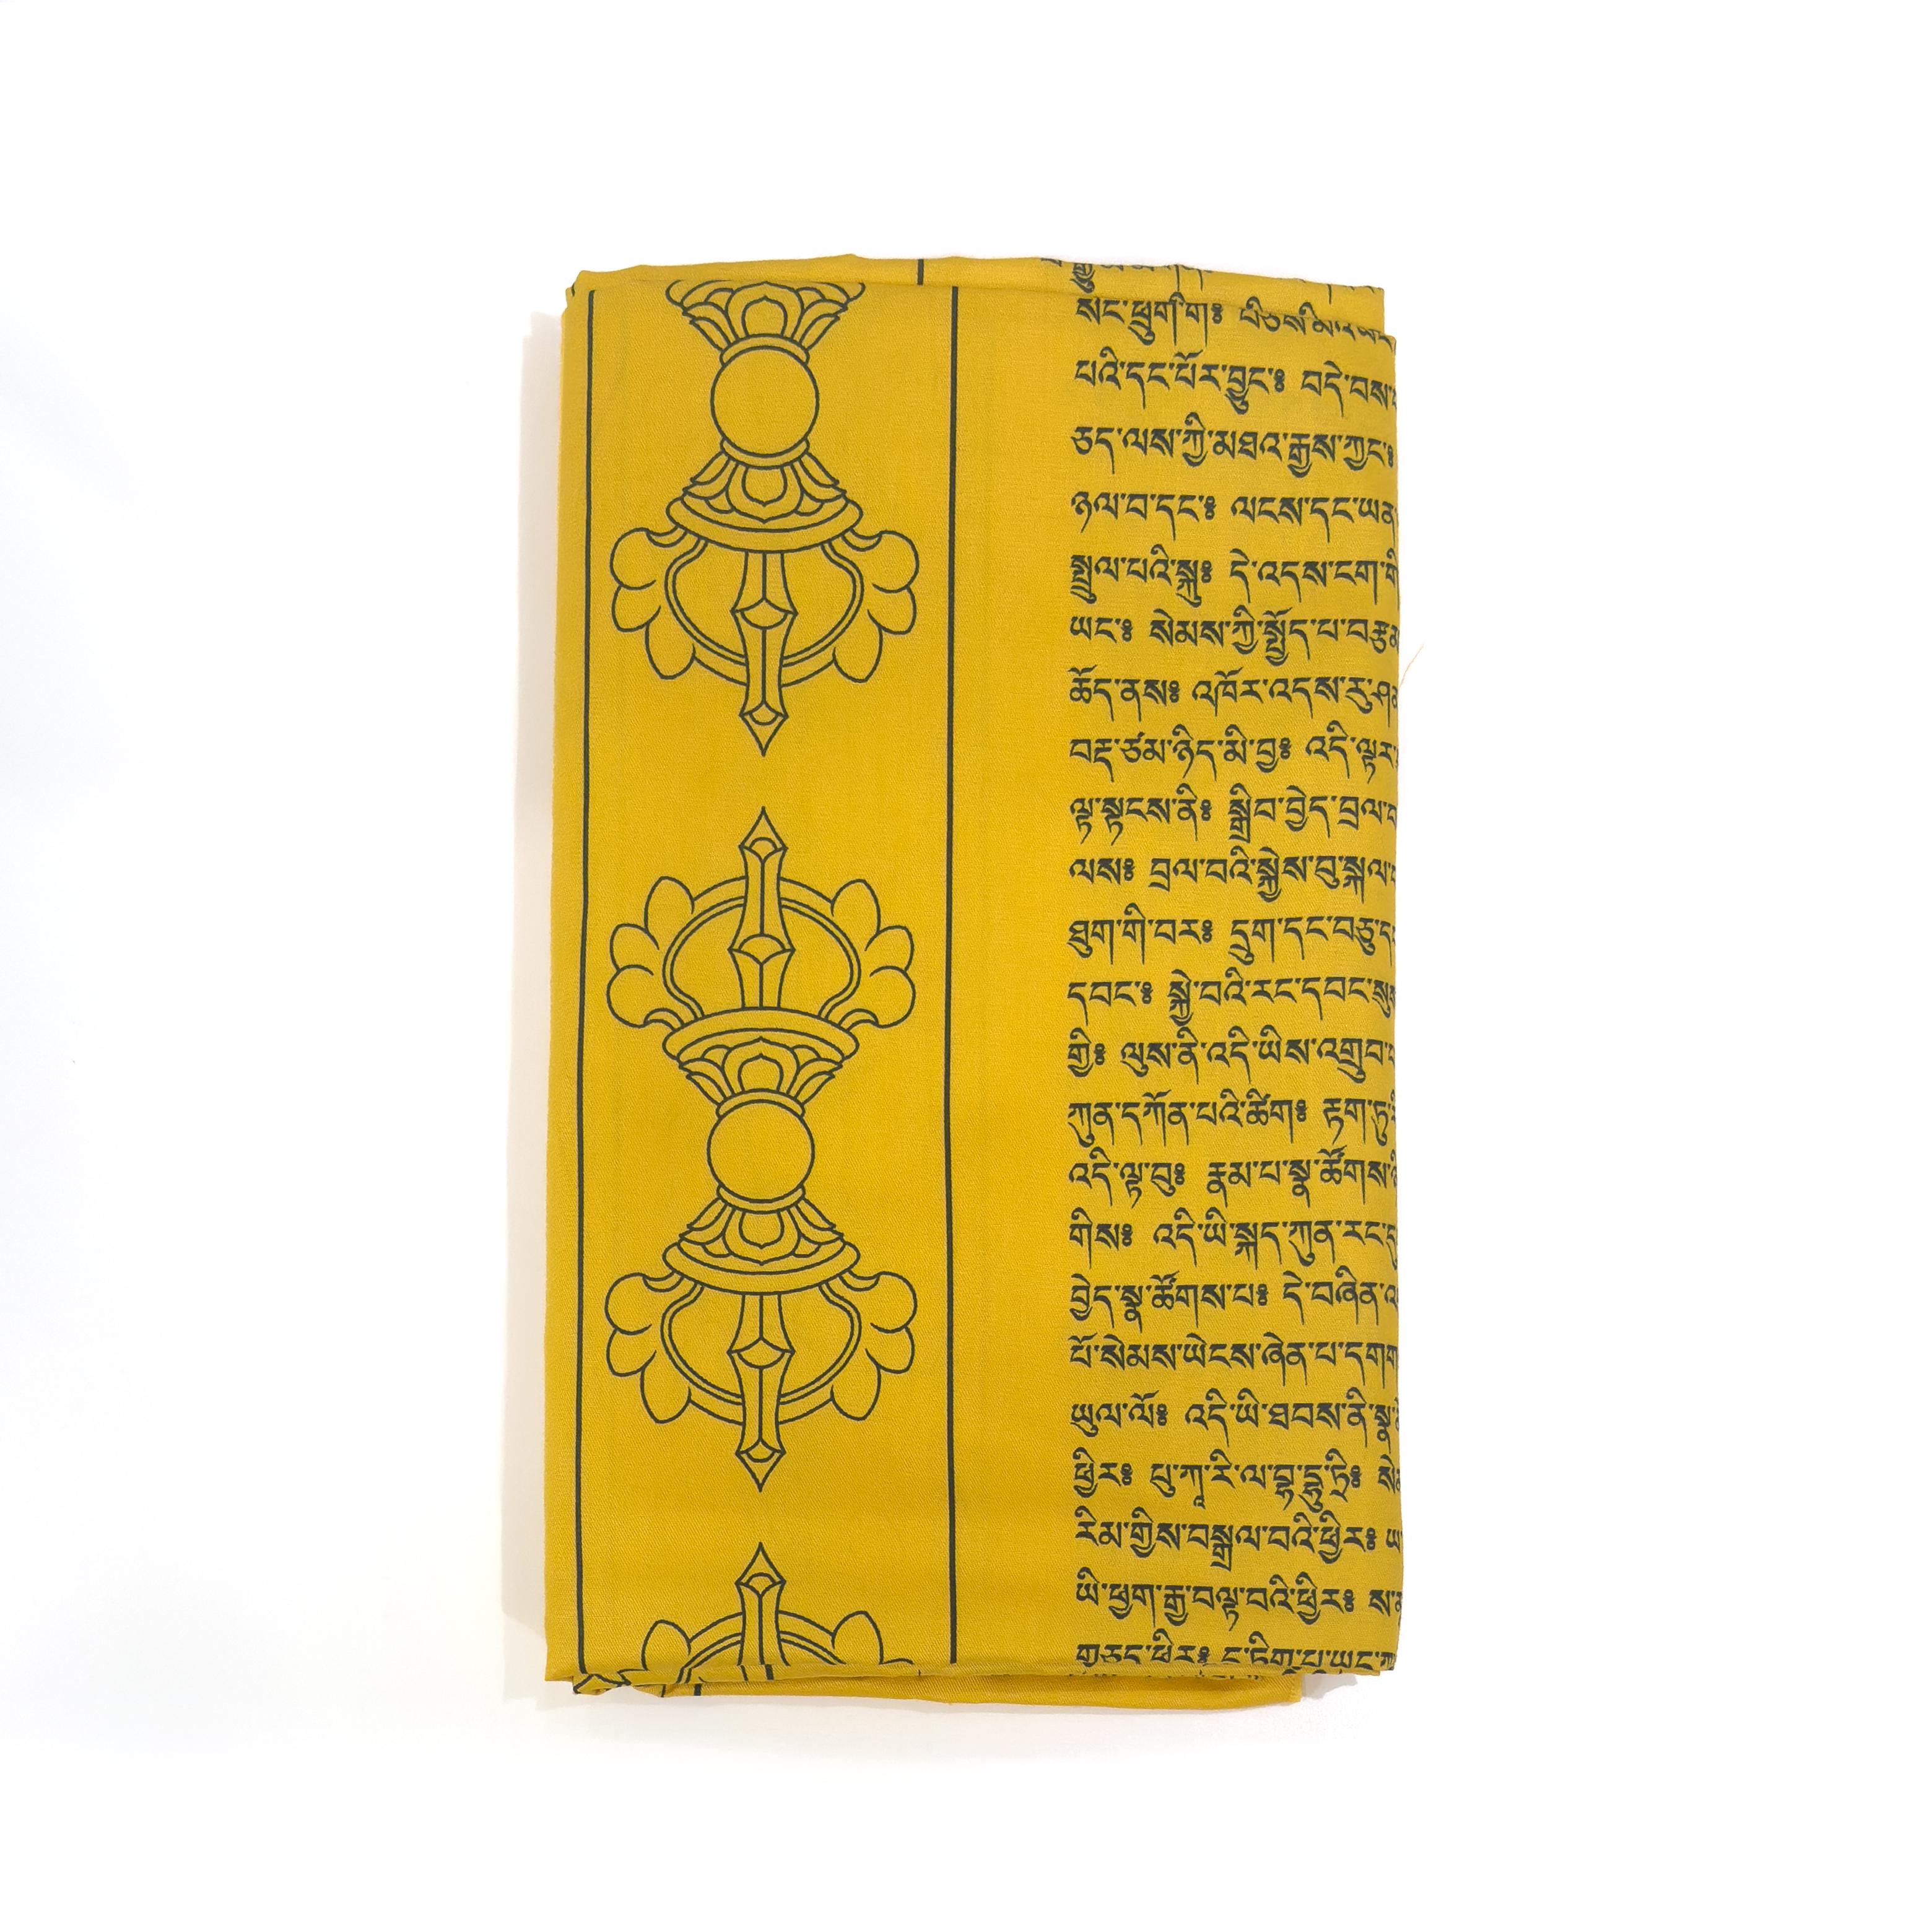 སང་ཕྲུག་གི༔
པའི་དང་པོར་བྱུང་༔ བདེ་བས
ཅད་ལས་ཀྱི་མཐའ་རྒྱས་ཀྱང༔
ཉལ་བ་དང་༔ ལངས་དང་ཡན
སྤྲུལ་པའི་སྐུ༔ དེ་འདས་ངག་གི
ཡང༔ སེམས་ཀྱི་སྤྱོད་པ་བརྩམ
ཚོད་ནས༔ འཁོར་འདས་རུ་ཤན
བརྡ་ཙམ་ཉིད་མི་བྱ༔ འདི་ལྟར
ལྟ་སྟངས་ནི༔ སྒྲིབ་བྱེད་བྲལ་བ
ལས༔ བྲལ་བའི་སྐྱེས་བུ་སྐལ
ཐུག་གི་བར༔ དྲུག་དང་བཅུ་ད
དབང་༔ སྐྱེ་བའི་རང་དབང་སྲུས
གྱི༔ ལུས་ནི་འདི་ཡིས་འགྲུབ
ཀུན་དཀོན་པའི་ཚིག༔ རྟག་ཏུ
འདི་ལྟ་བུ༔ རྣམ་པ་སྣ་ཚོགས
གིས༔ འདི་ཡི་སྐད་ཀུན་རང
བྱེད་སྣ་ཚོགས་པ༔ དེ་བཞིན
པོ་སེམས་ཡེངས་ཞེན་པ་དགག
ཡུལ་ལོ༔ འདི་ཡི་ཐབས་ནི་སྣ
ཕྱིར༔ པུ་ཀཱ་རི་ལ་བྷ་དྷུ་ཏྲི༔
རིམ་གྱིས་བསྒྲལ་བའི་ཕྱིར༔
ཡི་ཕྱག་རྒྱ་བལྟ་བའི་ཕྱིར༔